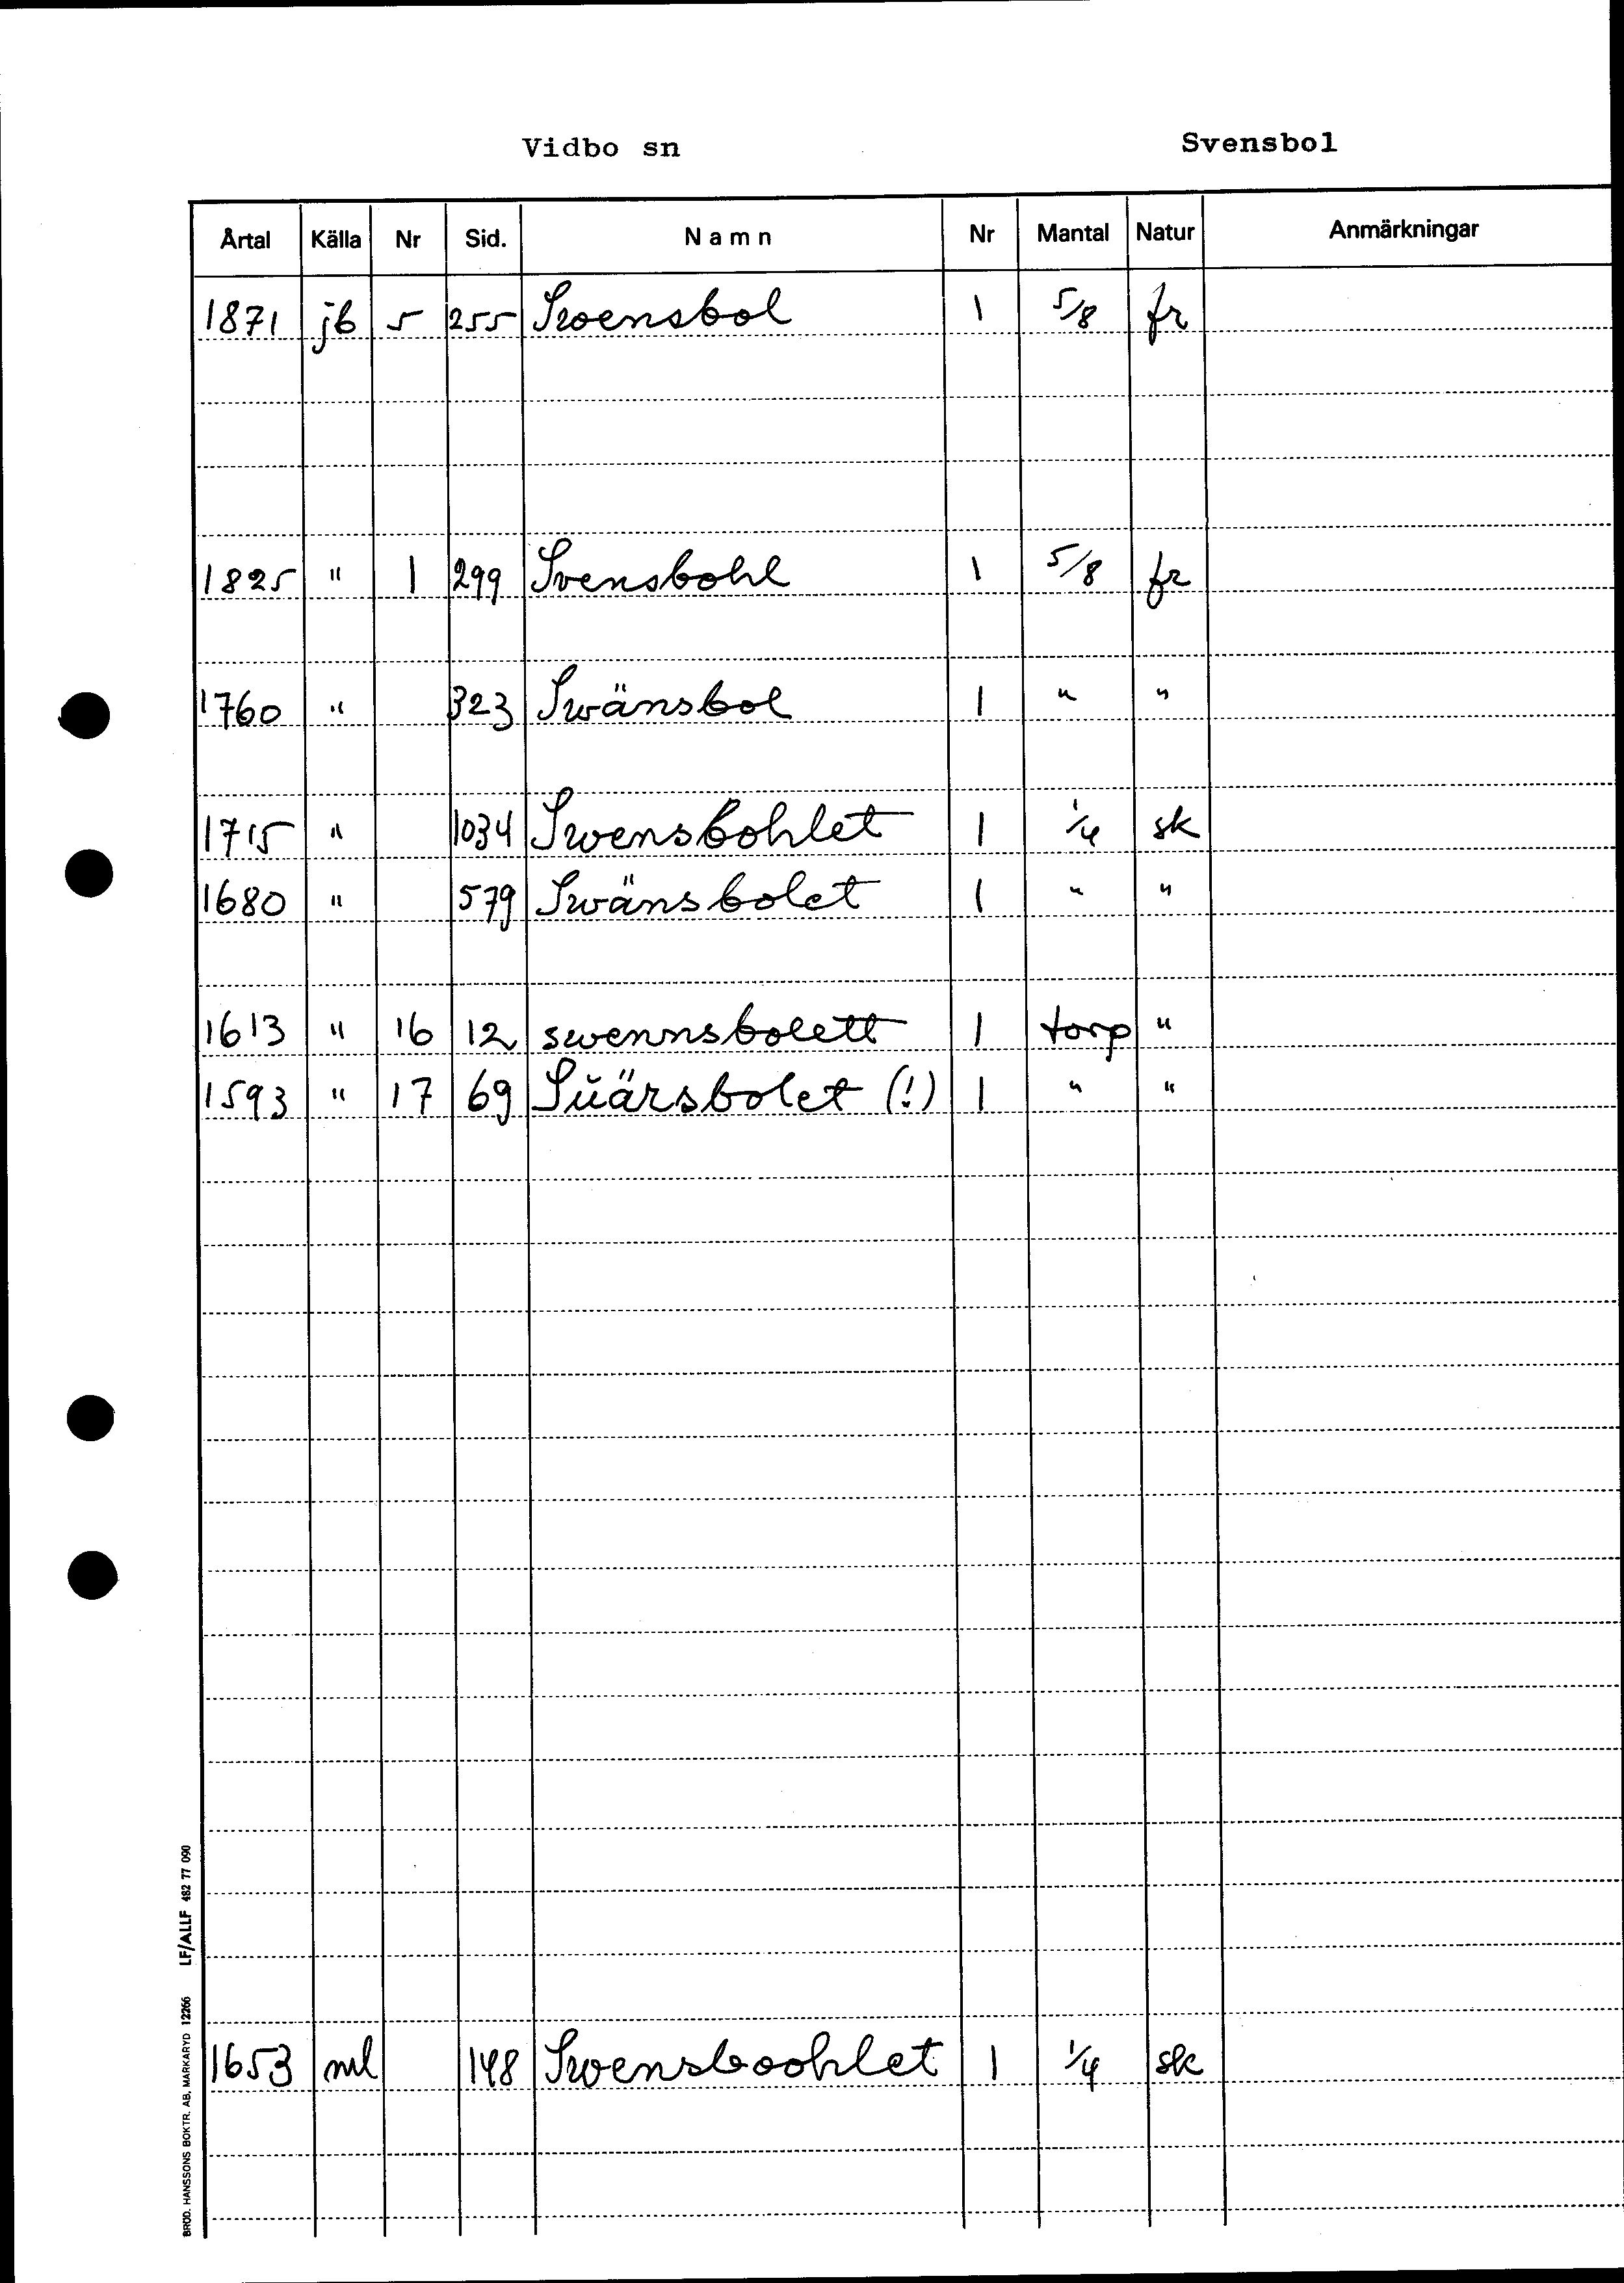 Vidbo sn Svensbol
Årtal Källa Nr Sid. Namn Nr Mantal Natur Anmärkningar
1871 jb 5 255 Swensbol 1 5/8 fr
1825 " 1 299 Svensbohl 1 5/8 fr
1760 " 323 Swänsbol 1 " "
1715 " 1034 Swensbohlet 1 1/4 sk
1680 " 579 Swänsbolet 1 " "
1613 " 16 12 swennsbolett 1 torp "
1593 " 17 69 Sŭärsbolet (!) 1 " "
1653 ml 148 Swensboohlet 1 1/4 sk
BROD. HANSSONS BOKTR. AB, MARKARYD 12266 LF/ALLF 482 77 090